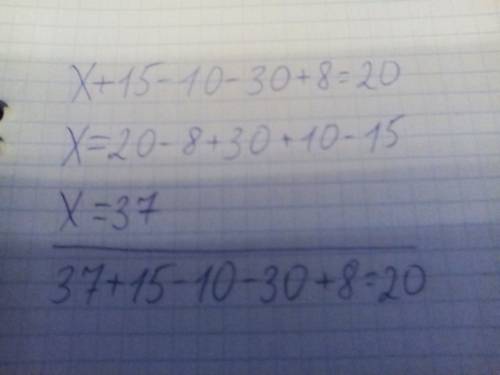 X+15-10-30+8=20
X=20-8+30+10-15
X=37
37+15-10-30+8=20